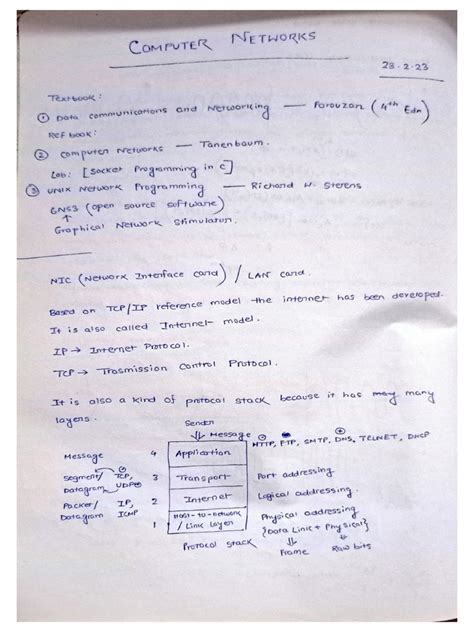 COMPUTER NETWORKS
23.2.23
Textbook:
① Data communications and Networking — Forouzan (4th Edn)
Ref book:
② Computer Networks — Tanenbaum.
Lab: [Socket Programming in C]
③ UNIX Network Programming — Richard W. Sterens
GNS3 (open source software)
↑
Graphical Network Stimulator.
NIC (Network Interface card) / LAN card.
Based on TCP/IP reference model the internet has been developed.
It is also called Internet model.
IP → Internet Protocol.
TCP → Trasmission Control Protocol.
It is also a kind of protocol stack because it has many
layers.
Sender
⇓ Message
HTTP, FTP, SMTP, DNS, TELNET, DHCP
Message 4 Application
Segment/ TCP, 3 Transport Port addressing
Datagram UDP
Packer/ IP, 2 Internet Logical addressing.
Datagram ICMP
1 Host-to-network Physical addressing
/ Link Layer {Data Link + Physical}
Protocol stack
⇓ ⇓
Frame Raw bits